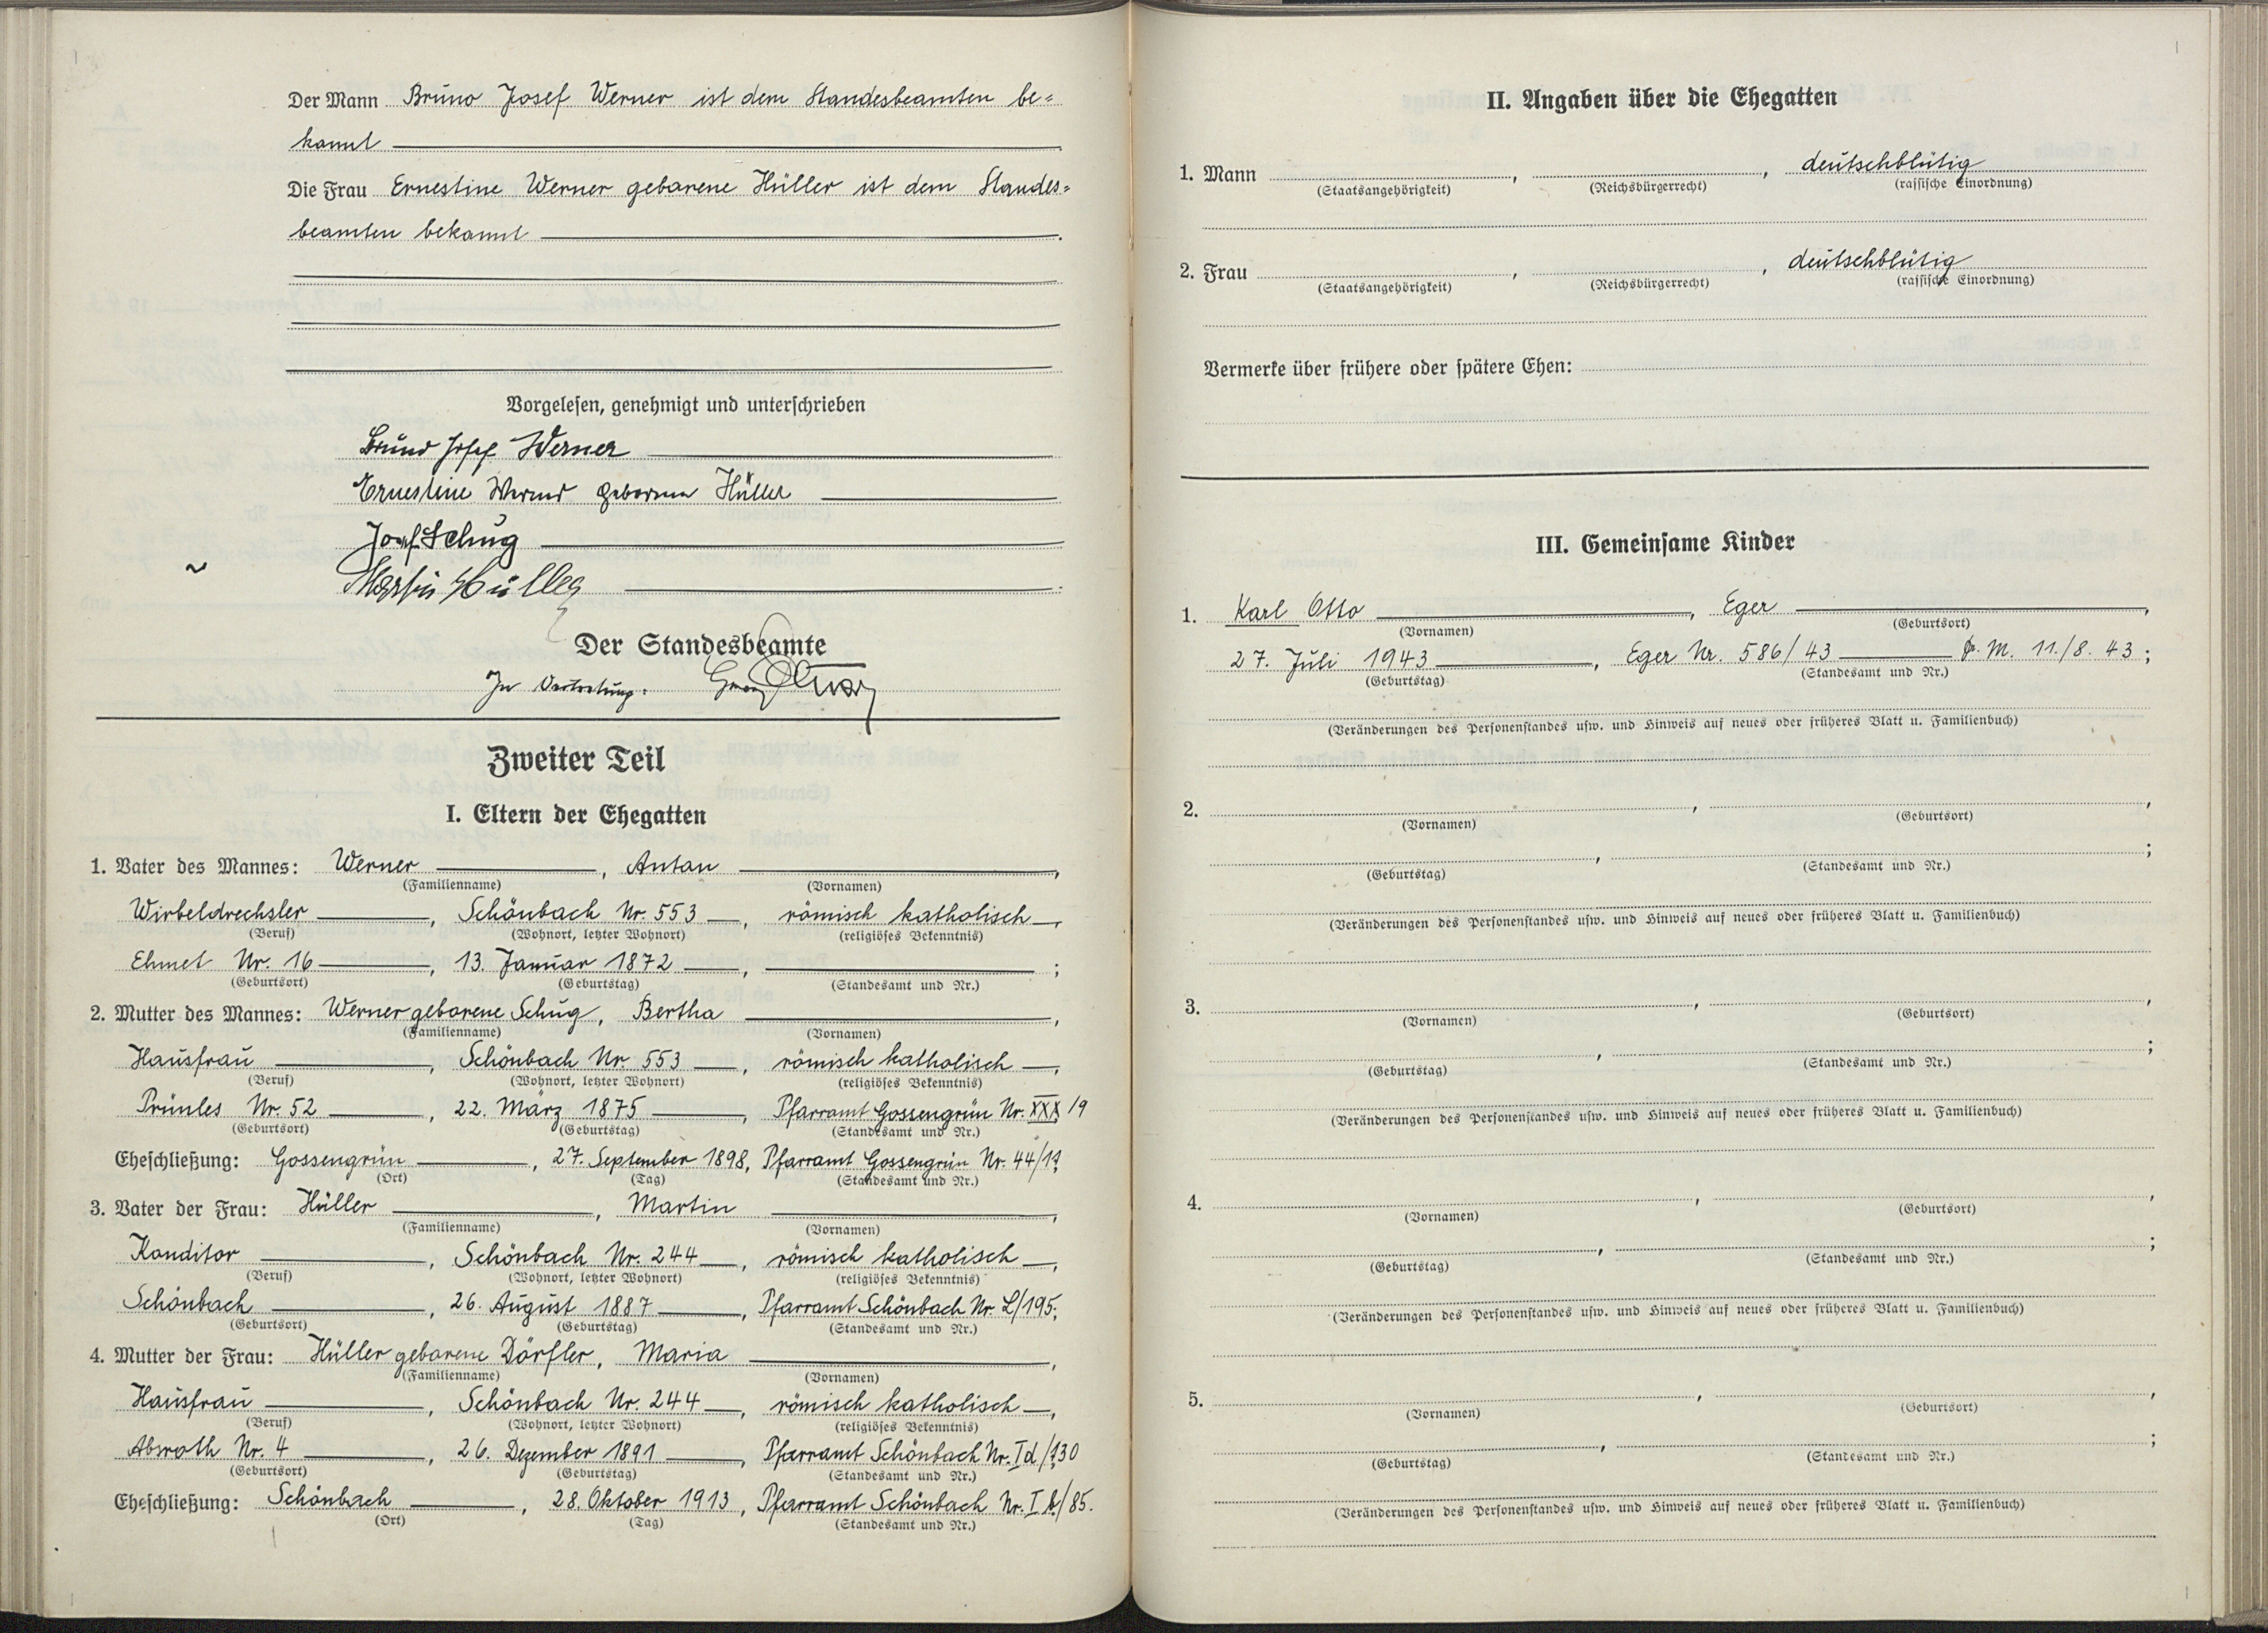 Der Mann Bruno Josef Werner ist dem Standesbeamten be=
kannt
Die Frau Ernestine Werner geborene Hüller ist dem Standes=
beamten bekannt
Vorgelesen, genehmigt und unterschrieben
Bruno Josef Werner
Ernestine Werner geborene Hüller
Josef Schug
Martin Hüller
Der Standesbeamte
In Vertretung:
Zweiter Teil
I. Eltern der Ehegatten
1. Vater des Mannes: Werner, Anton,
(Familienname) (Vornamen)
Wirbeldrechsler, Schönbach Nr. 553, römisch katholisch,
(Beruf) (Wohnort, letzter Wohnort) (religiöses Bekenntnis)
Ehmet Nr. 16, 13. Januar 1872, ;
(Geburtsort) (Geburtstag) (Standesamt und Nr.)
2. Mutter des Mannes: Werner geborene Schug, Bertha,
(Familienname) (Vornamen)
Hausfrau, Schönbach Nr. 553, römisch katholisch,
(Beruf) (Wohnort, letzter Wohnort) (religiöses Bekenntnis)
Prünles Nr. 52, 22. März 1875, Pfarramt Gossengrün Nr. XXX/9
(Geburtsort) (Geburtstag) (Standesamt und Nr.)
Eheschließung: Gossengrün, 27. September 1898, Pfarramt Gossengrün Nr. 44/19
(Ort) (Tag) (Standesamt und Nr.)
3. Vater der Frau: Hüller, Martin,
(Familienname) (Vornamen)
Konditor, Schönbach Nr. 244, römisch katholisch,
(Beruf) (Wohnort, letzter Wohnort) (religiöses Bekenntnis)
Schönbach, 26. August 1887, Pfarramt Schönbach Nr. L/195;
(Geburtsort) (Geburtstag) (Standesamt und Nr.)
4. Mutter der Frau: Hüller geborene Dörfler, Maria,
(Familienname) (Vornamen)
Hausfrau, Schönbach Nr. 244, römisch katholisch,
(Beruf) (Wohnort, letzter Wohnort) (religiöses Bekenntnis)
Absroth Nr. 4, 26. Dezember 1891, Pfarramt Schönbach Nr. Id/130
(Geburtsort) (Geburtstag) (Standesamt und Nr.)
Eheschließung: Schönbach, 28. Oktober 1913, Pfarramt Schönbach Nr. I b/85.
(Ort) (Tag) (Standesamt und Nr.)
II. Angaben über die Ehegatten
1. Mann , , deutschblütig
(Staatsangehörigkeit) (Reichsbürgerrecht) (rassische Einordnung)
2. Frau , , deutschblütig
(Staatsangehörigkeit) (Reichsbürgerrecht) (rassische Einordnung)
Vermerke über frühere oder spätere Ehen:
III. Gemeinsame Kinder
1. Karl Otto, Eger,
(Vornamen) (Geburtsort)
27. Juli 1943, Eger Nr. 586/43 M. 11./8. 43;
(Geburtstag) (Standesamt und Nr.)
(Veränderungen des Personenstandes usw. und Hinweis auf neues oder früheres Blatt u. Familienbuch)
2. , ,
(Vornamen) (Geburtsort)
, ;
(Geburtstag) (Standesamt und Nr.)
(Veränderungen des Personenstandes usw. und Hinweis auf neues oder früheres Blatt u. Familienbuch)
3. , ,
(Vornamen) (Geburtsort)
, ;
(Geburtstag) (Standesamt und Nr.)
(Veränderungen des Personenstandes usw. und Hinweis auf neues oder früheres Blatt u. Familienbuch)
4. , ,
(Vornamen) (Geburtsort)
, ;
(Geburtstag) (Standesamt und Nr.)
(Veränderungen des Personenstandes usw. und Hinweis auf neues oder früheres Blatt u. Familienbuch)
5. , ,
(Vornamen) (Geburtsort)
, ;
(Geburtstag) (Standesamt und Nr.)
(Veränderungen des Personenstandes usw. und Hinweis auf neues oder früheres Blatt u. Familienbuch)